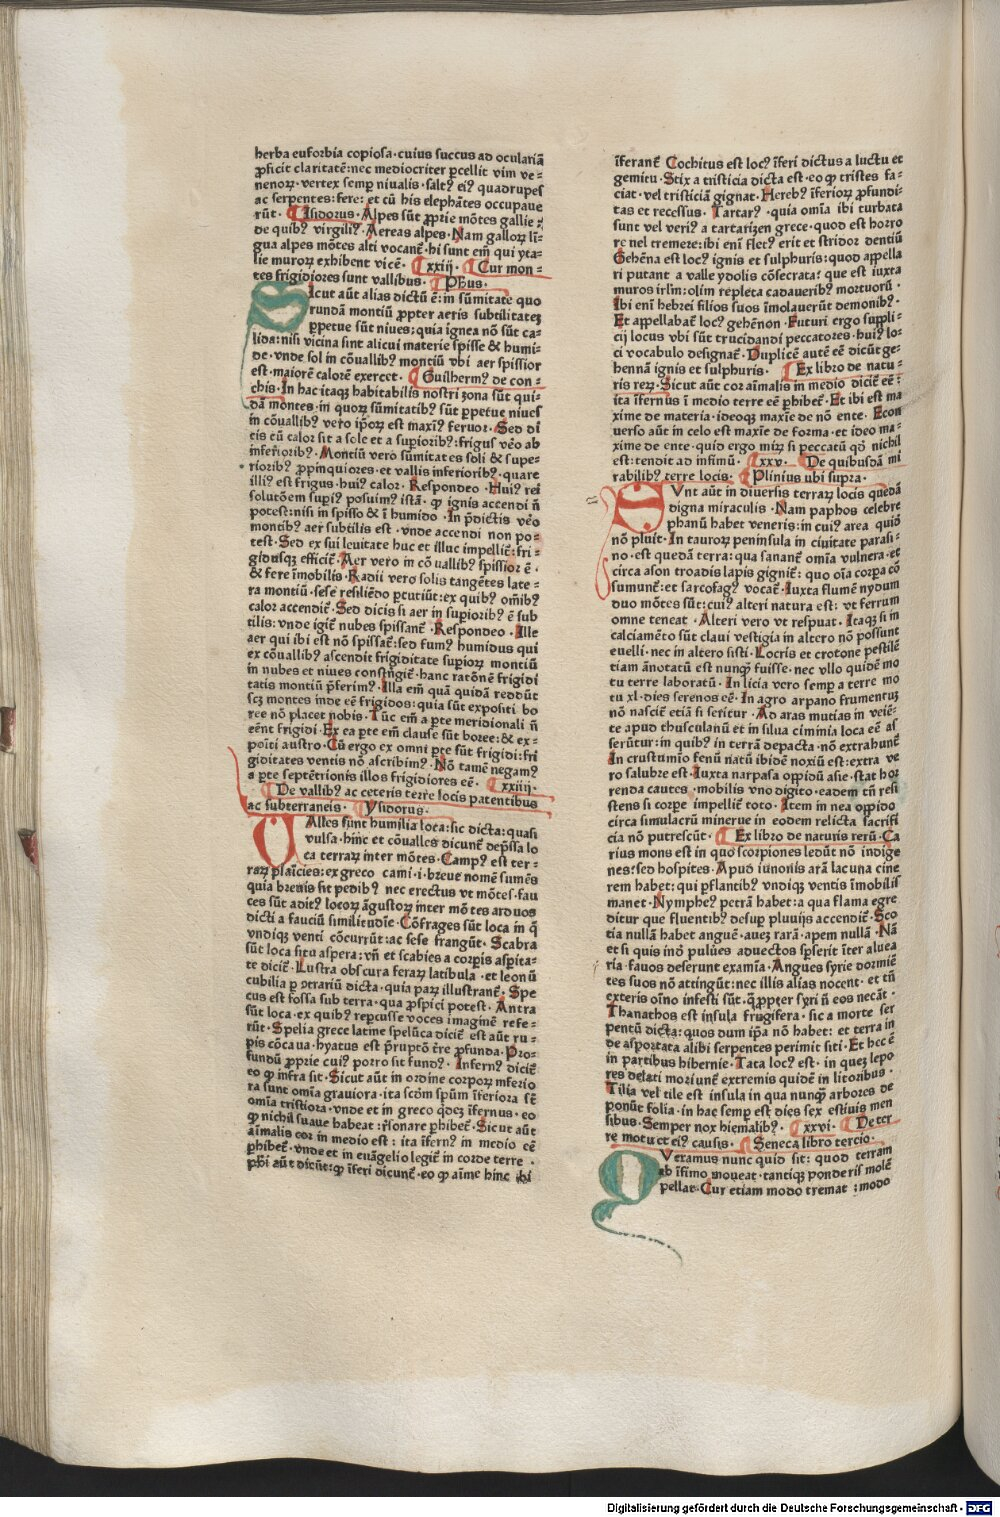 herba euforbia copiosa·cuius succus ad oculariā
ꝓficit claritatē:nec mediocriter ꝑcellit vim ve⸗
nenoꝝ·vertex semꝑ niualis·saltꝰ eiꝰ quadrupes
ac serpentes:fere: et cū his elephātes occupaue
rūt· ¶ Isidorus·Alpes sūt ꝓprie mōtes gallie:
de quibꝰ virgiliꝰ·Aereas alpes·Nam galloꝝ lī⸗
gua alpes mōtes alti vocant̄·hi sunt em̄ qui yta⸗
lie muroꝝ exhibent vicē· ¶ xxiij· ¶ Cur mon⸗
tes frigidiores sunt vallibus· ¶ Phūs·
SIcut aūt alias dictū ē:in sūmitate quo
rundā montiū ꝓpter aeris subtilitateꝫ
ꝑpetue sūt niues:quia ignea nō sūt ca⸗
lida:nisi vicina sint alicui materie spisse & humi⸗
de·vnde sol in cōuallibꝰ montiū vbi aer spissior
est·maiorē calorē exercet· ¶ Guilhermꝰ de con⸗
chis·In hac itaqꝫ habitabilis nostri zona sūt qui⸗
dā montes·in quoꝝ sūmitatibꝰ sūt ꝑpetue niues
in cōuallibꝰ vero ip̄oꝝ est maxīꝰ feruor·Sed di
tis cū calor sit a sole et a suꝑioribꝰ:frigus vēo ab
inferioribꝰ·Montiū vero sūmitates soli & supe⸗
rioribꝰ ꝓpinquiores·et vallis inferioribꝰ·quare
illiꝰ est frigus·huiꝰ calor·Respondeo·Huiꝰ rei
solutōem supiꝰ posuimꝰ istā·ꝙ ignis accendi n̄
potest:nisi in spisso & ī humido·In p̄dictis vēo
montibꝰ aer subtilis est·vnde accendi non po⸗
test·Sed ex sui leuitate huc et illuc impellit̄:fri⸗
gidusqꝫ efficit̄·Aer vero in cōuallibꝰ spissior ē·
& fere īmobilis·Radii vero solis tangētes late⸗
ra montiū·sese resiliēdo ꝑcutiūt:ex quibꝰ om̄ibꝰ
calor accendit̄·Sed dicis si aer in suꝑioribꝰ ē sub
tilis:vnde igit̄ nubes spissant̄·Respondeo·Ille
aer qui ibi est nō spissat̄:sed fumꝰ humidus qui
ex cōuallibꝰ ascendit frigiditate suꝑioꝝ montiū
in nubes et niues constr̄git̄·hanc ratōnē frigidi
tatis montiū p̄ferimꝰ·Illa em̄ quā quidā reddūt
scꝫ montes inde eē frigidos:quia sūt expositi bo
ree nō placet nobis·Tūc em̄ a ꝑte meridionali n̄
eēnt frigidi·Ex ea ꝑte em̄ clause sūt boree:& ex⸗
poīti austro·Cū ergo ex omni ꝑte sūt frigidi:fri
giditates ventis nō ascribimꝰ·Nō tamē negamꝰ
a ꝑte septētrionis illos frigidiores eē· ¶ xxiiij·
¶ De vallibꝰ ac ceteris terre locis patentibus
ac subterraneis· ¶ Ysidorus·
VAlles sunt humilia loca:sic dicta:quasi
vulsa·hinc et cōualles dicunt̄ dep̄ssa lo
ca terraꝝ inter mōtes·Campꝰ est ter⸗
raꝝ planicies:ex greco cami·i·breue nomē sumēs
quia breuis sit pedibꝰ nec erectus vt mōtes·fau
ces sūt aditꝰ locoꝝ āgustoꝝ inter mōtes arduos
dicti a fauciū similitudīe·Cōfrages sūt loca in q̄
vndiqꝫ venti cōcurrūt:ac sese frangūt·Scabra
sūt loca situ aspera:vn̄ et scabies a corꝑis asꝑita⸗
te dicit̄·Lustra obscura feraꝝ latibula·et leonū
cubilia ꝑ ɔtrariū dicta·quia paꝝ illustrant̄·Spe
cus est fossa sub terra·qua ꝓspici potest·Antra
sūt loca·ex quibꝰ reꝑcusse voces imaginē refe⸗
rūt·Spelia grece latine spelūca dicit̄ est aūt ru⸗
pis cōcaua·hyatus est p̄ruptō tr̄e ꝓfunda·Pro⸗
fundū ꝓprie cuiꝰ porro sit fundꝰ·Infernꝰ dicit̄
eo ꝙ infra sit·Sicut aūt in ordine corpoꝝ inferio
ra sunt omīa grauiora·ita scd̄m spūm īferiora st̄
omīa tristiora·vnde et in greco q̄deꝫ īfernus·eo
ꝙ nichil suaue habeat:r̄sonare ꝑhibet̄·Sicut aūt
aīmalis cor in medio est:ita īfernꝰ in medio eē
ꝑhibet̄·vnde et in euāgelio legit̄ in corde terre·
ph̄i aūt dicūt:ꝙ īferi dicunt̄·eo ꝙ aīme hinc ibi
īferant̄ Cochitus est locꝰ īferi dictus a luctu et
gemitu·Stix a tristicia dicta est·eo ꝙ tristes fa⸗
ciat·vel tristiciā gignat·Herebꝰ īferioꝝ ꝓfundi⸗
tas et recessus·Tartarꝰ·quia omīa ibi turbata
sunt vel veriꝰ a tartarizen grece·quod est horro
re nel tremere:ibi enī fletꝰ erit et stridor dentiū
Gehēna est locꝰ ignis et sulphuris:quod appella
ri putant a valle ydolis cōsecrata:que est iuxta
muros irlm̄:olim repleta cadaueribꝰ mortuoꝝ·
Ibi enī hebrei filios suos īmolauerūt demonibꝰ·
Et appellabāt locꝰ gehēnon·Futuri ergo suppli⸗
cij locus vbi sūt trucidandi peccatores·huiꝰ lo⸗
ci vocabulo designat̄·Duplicē autē eē dicūt ge⸗
hennā ignis et sulphuris· ¶ Ex libro de natu⸗
ris reꝝ·Sicut aūt cor aīmalis in medio dicit̄ eē:
ita īfernus ī medio terre eē ꝑhibet̄·Et ibi est ma
xime de materia·ideoqꝫ maxīe de nō ente·Econ
uerso aūt in celo est maxīe de forma·et ideo ma⸗
xime de ente·quid ergo miꝝ si peccatū qd̄ nichil
est:tendit ad infimū· ¶ xxv· ¶ De quibusdā mi
rabilibꝰ terre locis· ¶ Plinius vbi supra·
SVnt aūt in diuersis terraꝝ locis quedā
digna miraculis·Nam paphos celebre
phanū habet veneris:in cuiꝰ area quidē
nō pluit·In tauroꝝ peninsula in ciuitate parasi⸗
no·est quedā terra:qua sanant̄ omīa vulnera·et
circa ason troadis lapis gignit̄:quo oīa corpa cō
sumunt̄:et sarcofagꝰ vocat̄·Iuxta flumē nydum
duo mōtes sūt:cuiꝰ alteri natura est:vt ferrum
omne teneat·Alteri vero vt respuat·Itaqꝫ si in
calciamēto sūt claui vestigia in altero nō possunt
euelli·nec in altero sisti·Locris et crotone pestilē
tiam ānotatū est nunqꝫ fuisse·nec vllo quidē mo
tu terre laboratū·In licia vero semꝑ a terre mo
tu xl·dies serenos eē·In agro arpano frumentuꝫ
nō nascit̄ etiā si seritur·Ad aras mutias in veiē⸗
te apud thusculanū et in silua ciminia loca eē as
serūtur:in quibꝰ in terrā depacta·nō extrahunt̄
In crustumio fenū natū ibidē noxiū est:extra ve
ro salubre est·Iuxta narpasa oppidū asie·stat hor
renda cautes·mobilis vno digito·eadem tn̄ resi
stens si corpe impellit̄ toto·Item in nea oppido
circa simulacrū minerue in eodem relicta sacrifi
cia nō putrescūt· ¶ Ex libro de naturis rerū·Ca
rius mons est in quo scorpiones ledūt nō indige
nes:sed hospites·Apud iunonis arā lacuna cine
rem habet:qui ꝑflantibꝰ vndiqꝫ ventis īmobilis
manet·Nympheꝰ petrā habet:a qua flama egre
ditur que fluentibꝰ desuꝑ pluuijs accendit̄·Sco
tia nullā habet anguē·aueꝫ rarā·apem nullā·Nā
et si quis inō pulūes aduectos sꝑserit īter aluea
ria·fauos deserunt examīa·Angues syrie dormiē
tes suos nō attingūt:nec illis alias nocent·et tn̄
exteris oīno infesti sūt·q̄ꝓpter syri n̄ eos necāt·
Thanathos est insula frugifera·sic a morte ser
pentū dicta:quos dum ip̄a nō habet: et terra in
de asportata alibi serpentes perimit siti·Et hec ē
in partibus hibernie·Tata locꝰ est·in queꝫ lepo
res delati moriunt̄ extremis quidē in litoribus·
Tilia vel tile est insula in qua nunqꝫ arbores de
ponūt folia·in hac semꝑ est dies sex estiuis men
sibus·Semper nox hiemalibꝰ· ¶ xxvi· ¶ De ter
re motu et eiꝰ causis· ¶ Seneca libro tercio·
QVeramus nunc quid sit: quod terram
ab īfimo moueat·tantiqꝫ ponderis molē
pellat·Cur etiam modo tremat:modo
Digitalisierung gefördert durch die Deutsche Forschungsgemeinschaft · DFG